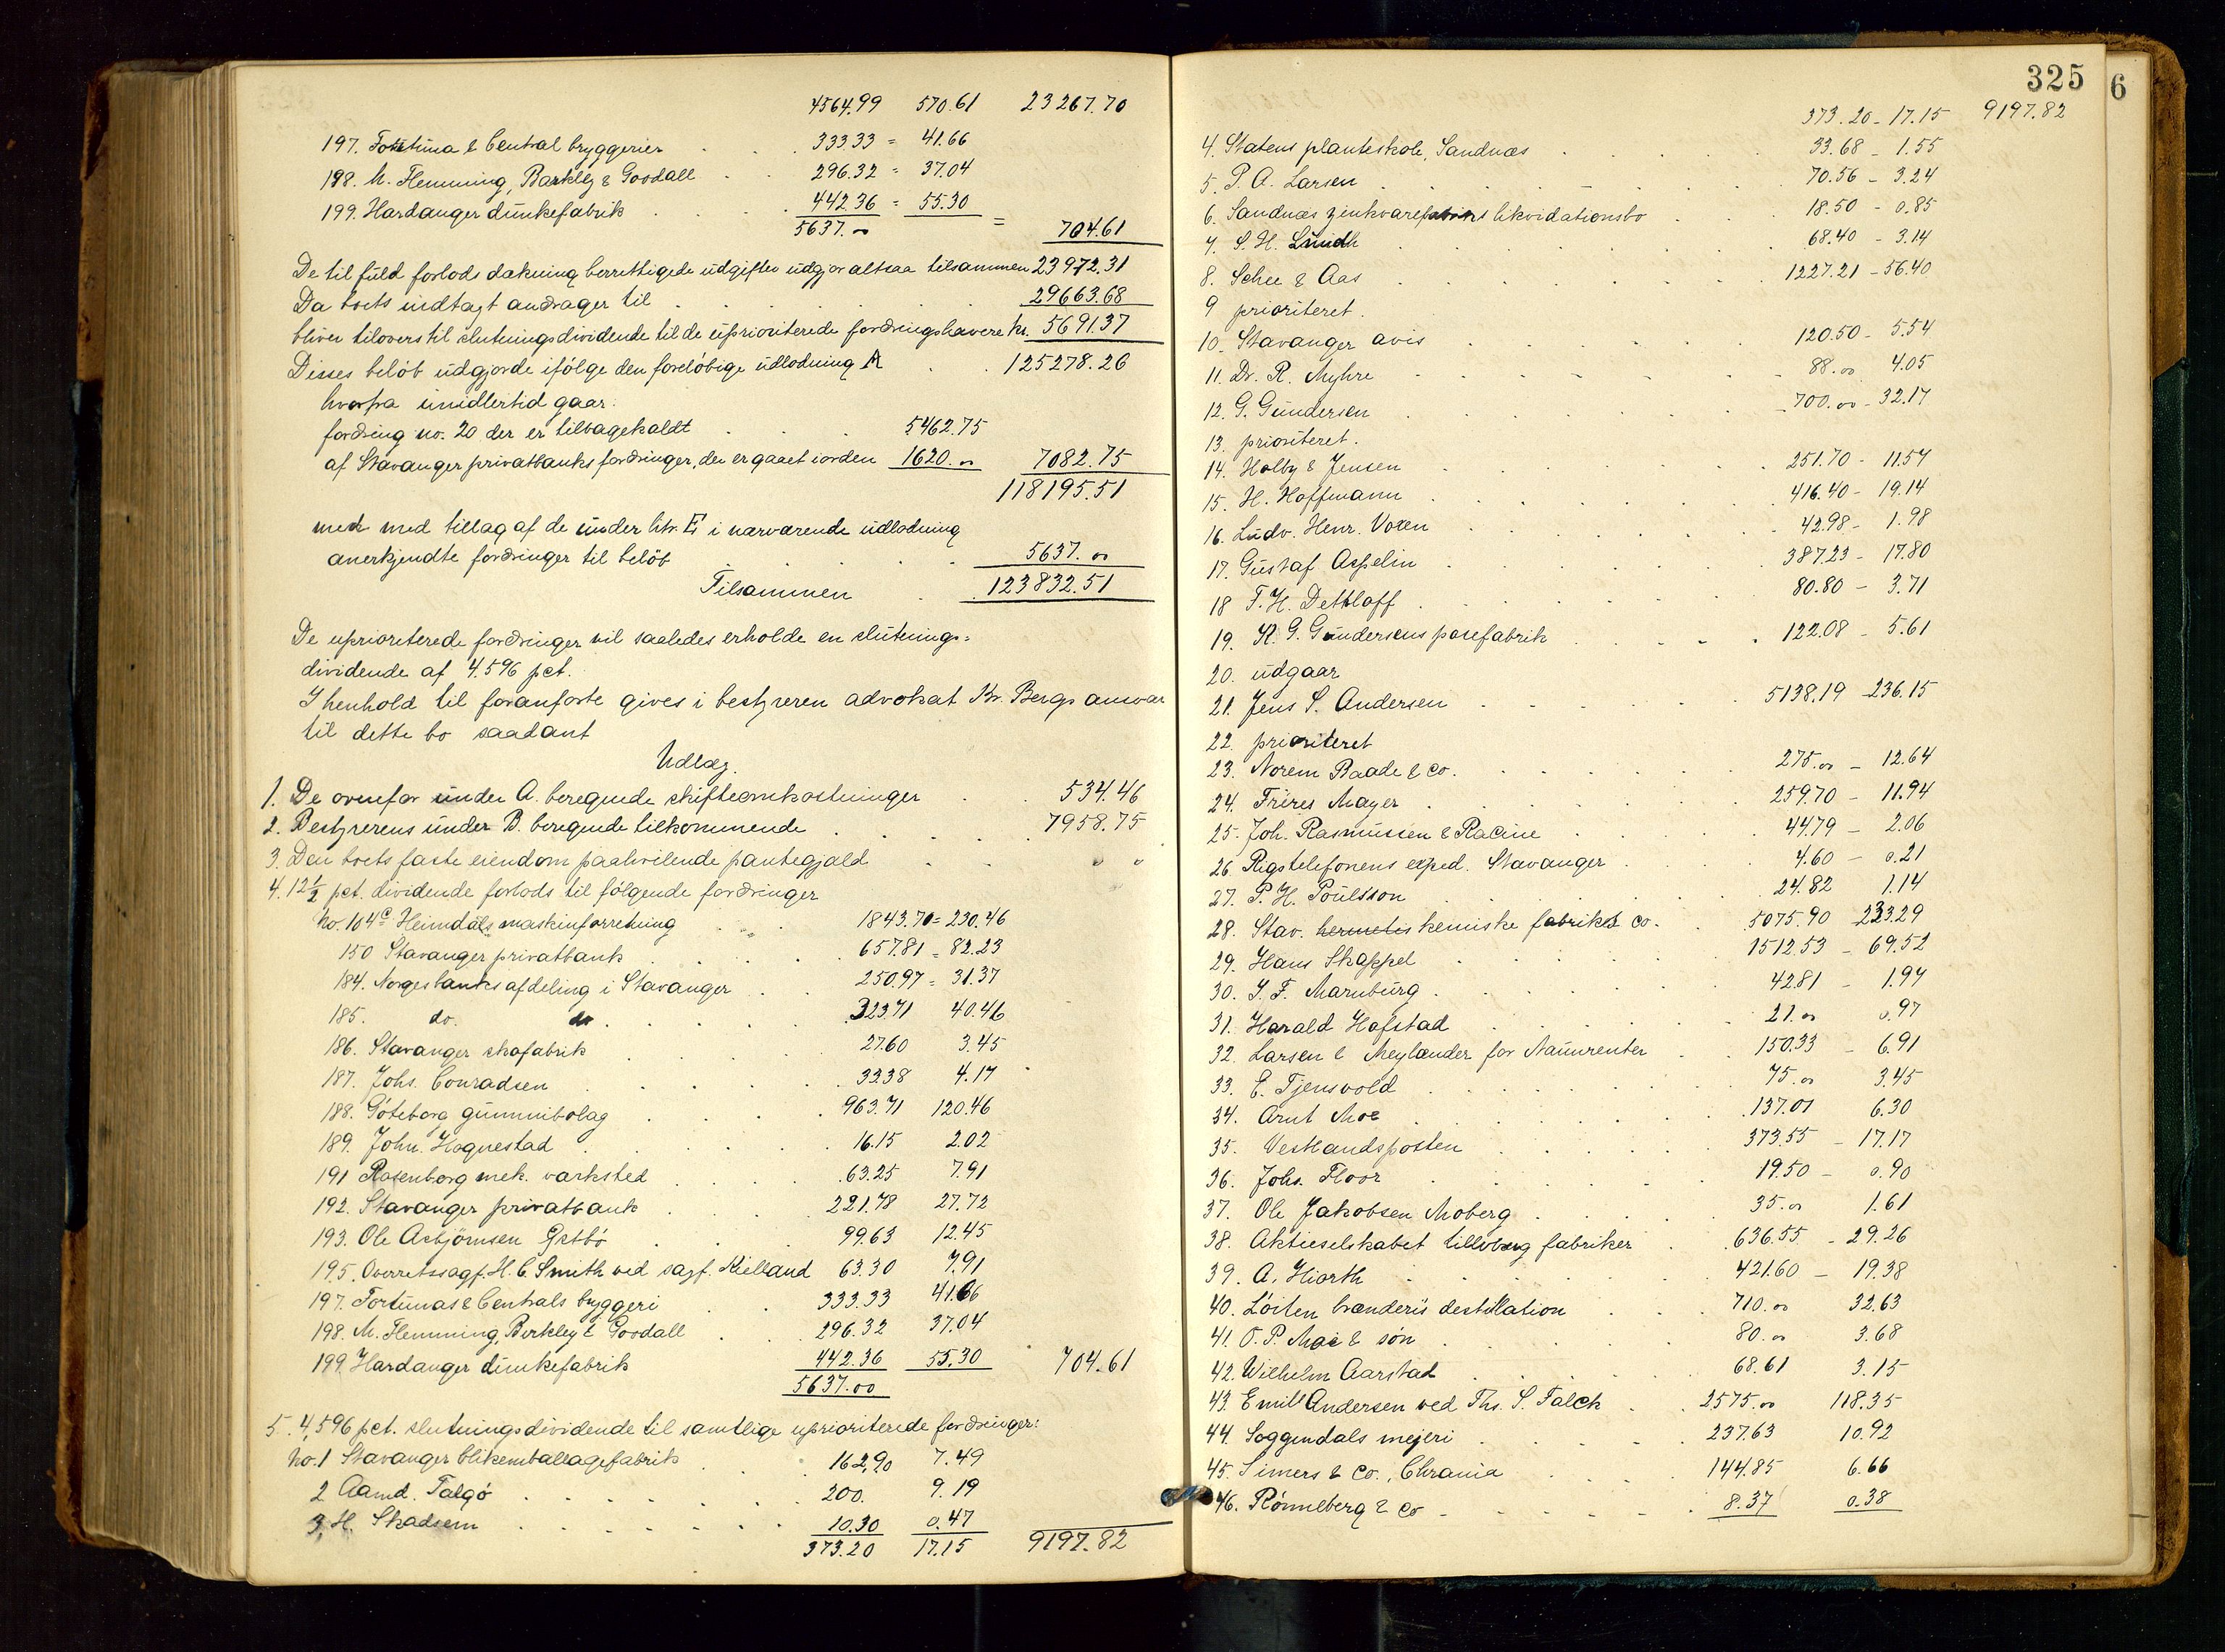 4564.99 570.61 23267.70
197. Fortuna & Central bryggerier . . 333.33 = 41.66
198. M. Flemming, Barkley & Goodall . . 296.32 = 37.04
199. Hardanger dunkefabrik . . . . 442.36 = 55.30
5637.00 = 704.61
De til fuld forlods dækning berettigede udgifter udgjør altsaa tilsammen 23972.31
Da boets indtægt andrager til . . . . . 29663.68
bliver tilovers til slutningsdividende til de uprioriterede fordringshavere kr. 5691.37
Disses beløb udgjorde ifølge den foreløbige udlodning A . . 125278.26
hvorfra imidlertid gaar:
fordring no. 20 der er tilbagekaldt . . . 5462.75
af Stavanger privatbanks fordringer, der er gaaet i orden 1620.00 7082.75
118195.51
med tillæg af de under litr. E i nærværende udlodning
anerkjendte fordringer til beløb . . . 5637.00
Tilsammen . . 123832.51
De uprioriterede fordringer vil saaledes erholde en slutnings=
dividende af 4.596 pct.
I henhold til foranførte gives i bestyreren advokat Kr. Bergs ansvar
til dette bo saadant
Udlæg.
1. De ovenfor under A. beregnede skifteomkostninger . . 534.46
2. Bestyrerens under B. beregnede tilkommende . . . . 7958.75
3. Den boets faste eiendom paahvilende pantegjæld . . " "
4. 12½ pct. dividende forlods til følgende fordringer
No. 104c Heimdals maskinforretning . . 1843.70 = 230.46
150 Stavanger privatbank . . . . 657.81 = 82.23
184. Norges banks afdeling i Stavanger . . 250.97 = 31.37
185. do. do . . . . 323.71 40.46
186. Stavanger skofabrik . . . . 27.60 3.45
187. Johs. Conradsen . . . . 33.38 4.17
188. Göteborg gummibolag . . . . 963.71 120.46
189. John. Hognestad . . . . 16.15 2.02
191 Rosenborg mek. værksted . . . . 63.25 7.91
192. Stavanger privatbank . . . . 221.78 27.72
193. Ole Asbjörnsen . . . 99.63 12.45
195. Overretssagf. H. C. Smith ved sagf. Kielland 63.30 7.91
197. Fortunas & Centrals byggeri . . 333.33 41.66
198. M. Flemming, Berkley & Goodall . 296.32 37.04
199. Hardanger dunkefabrik . . 442.36 55.30 704.61
5637.00
5. 4,596 pct. slutningsdividende til samtlige uprioriterede fordringer:
No. 1 Stavanger blikemballagefabrik . . 162,90 7.49
2 Aamd. Talgö . . . . . 200. 9.19
3, H. Skadsem . . . . . . 10.30 0.47
373.20 17.15 9197.82
325 6
373.20 - 17.15 9197.82
4. Statens planteskole, Sandnæs . . . . 33.68 - 1.55
5. P. A. Larsen . . . . . . 70.56 - 3.24
6. Sandnæs zinkvarefabriks likvidationsbo . . 18.50 - 0.85
7. S. H. Lundh . . . . . 68.40 - 3.14
8. Schee & Aas . . . . . . 1227.21 - 56.40
9 prioriteret.
10. Stavanger avis . . . . . 120.50 - 5.54
11. Dr. R. Myhre . . . . . 88.00 4.05
12. G. Gundersen . . . . . 700.00 - 32.17
13. prioriteret.
14. Holby & Jensen . . . . . 251.70 - 11.57
15. H. Hoffmann . . . . . 416.40 - 19.14
16. Ludv. Henr. Voxen . . . . . 42.98 - 1.98
17. Gustaf Aspelin . . . . . 387.23 - 17.80
18 F. H. Dethloff . . . . . 80.80 - 3.71
19. K. G. Gundersens posefabrik . . . . 122.08 - 5.61
20. udgaar
21. Jens S. Andersen . . . . . 5138.19 - 236.15
22. prioriteret
23. Norem Baade & Co. . . . . 275.00 - 12.64
24. Frères Mayer . . . . . 259.70 - 11.94
25. Joh. Rasmussen & Racine . . . . 44.79 - 2.06
26. Rigstelefonens exped. Stavanger . . . 4.60 - 0.21
27. P. H. Poulsson . . . . . 24.82 1.14
28. Stav. hermetis kemiske fabriks co. . 5075.90 233.29
29. Hans Skappel . . . . . 1512.53 - 69.52
30. J. F. Marnburg . . . . . 42.81 - 1.97
31. Harald Hofstad . . . . . 21.00 0.97
32. Larsen & Meylænder for Naurenter . . 150.33 - 6.91
33. E. Tjensvold . . . . . 75.00 3.45
34. Arnt Moe . . . . . 137.01 6.30
35. Vestlandsposten . . . . . 373.55 - 17.17
36. Johs. Floor . . . . . 19.50 - 0.90
37. Ole Jakobsen Moberg . . . . 35.00 1.61
38. Aktieselskabet Lilleborg fabriker . . 636.55 - 29.26
39. A. Hiorth . . . . . 421.60 - 19.38
40. Löiten brænderis destillation . . . 710.00 32.63
41. O. P. Moe & sön . . . . . 80.00 3.68
42. Wilhelm Aarstad . . . . . 68.61 3.15
43. Emil Andersen ved Ths. S. Falck . . 2575.00 118.35
44. Soggendals mejeri . . . . 237.63 10.92
45. Simers & Co., Chrania . . . . 144.85 6.66
46. Rönneberg & Co . . . . . 8.37 0.38